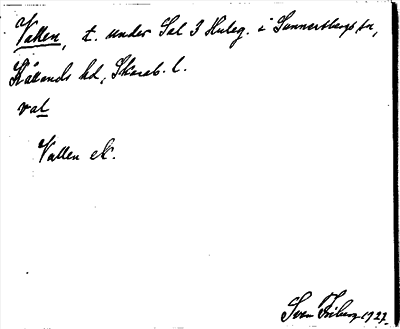 Vallen, t. under Sal 3 Huseg. i Sunnersbergs sn,
Kållands hd, Skarab. l.
val
Vallen ek.
Sven Friberg 1927.